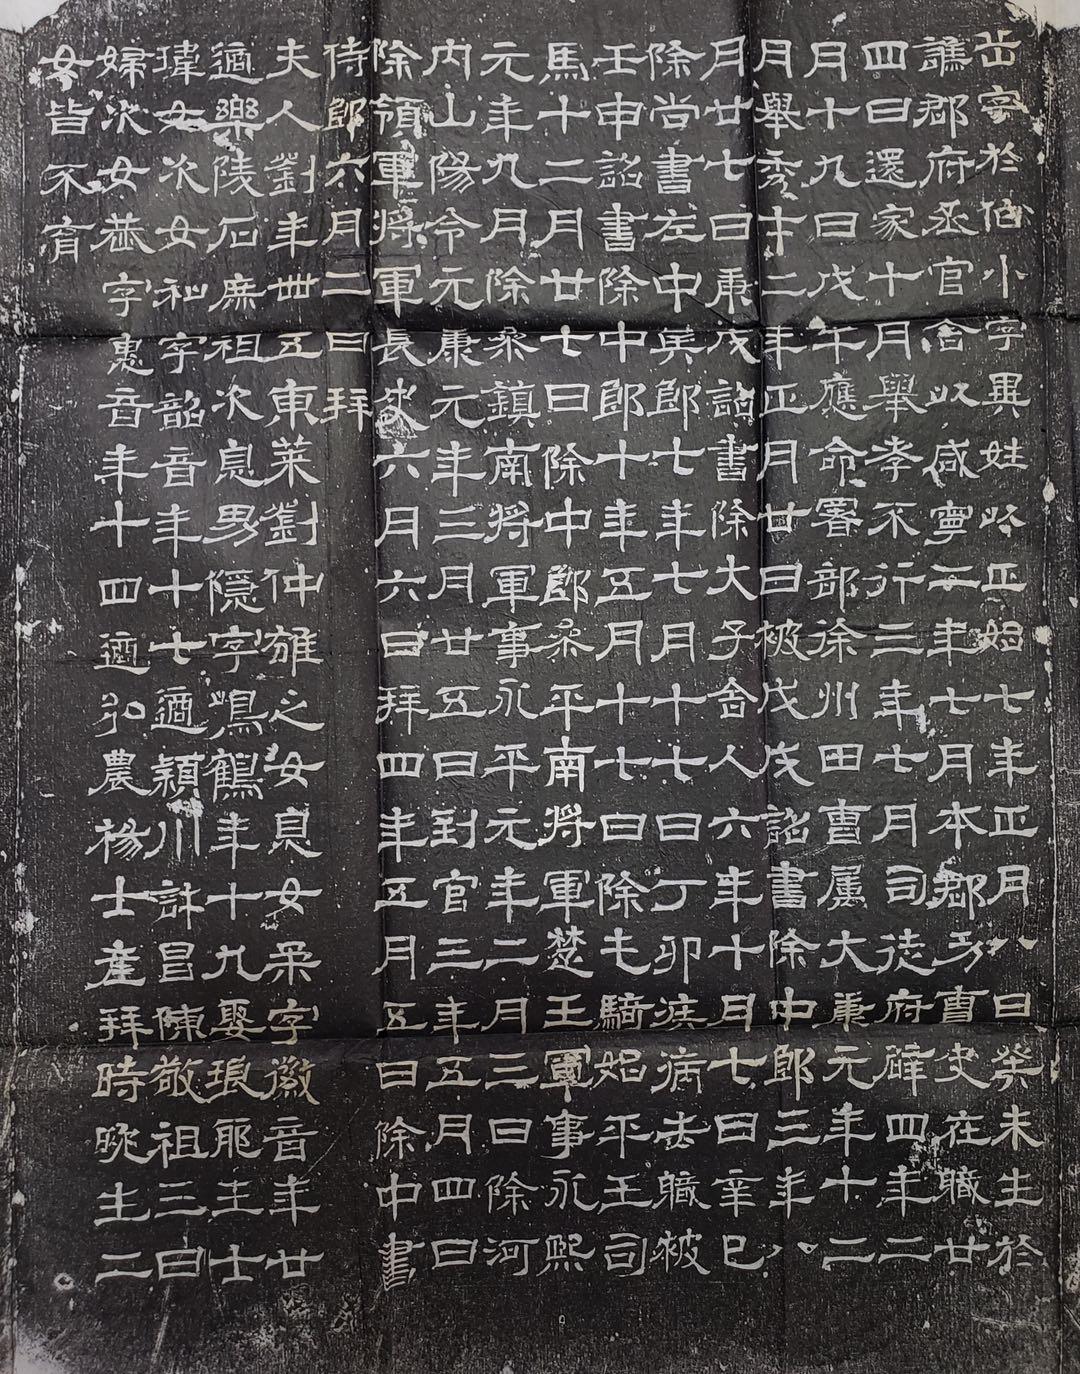 岳字於伯小字異姓以正始七年正月八日癸未生於
譙郡府丞官舍以咸寧二年七月本郡功曹史在職廿
四日還家十月舉孝不行三年七月司徒府辟四年二
月十九日戊午應命署部徐州田曹屬大康元年十二
月舉秀才二年正月廿日被戊戌詔書除中郎三年八
月廿七日庚戌詔書除大子舍人六年十月七日辛巳
除尚書左中兵郎七年七月十七日丁卯疾病去職被
壬申詔書除中郎十年五月十七日除屯騎始平王司
馬十二月廿七日除中郎參平南將軍楚王軍事永熙
元年九月除參鎮南將軍事永平元年二月三日除河
内山陽令元康元年三月廿五日到官三年五月四日
除領軍將軍長史六月六日拜四年五月五日除中書
侍郎六月二日拜
夫人劉年卌五東萊劉仲雄之女息女柔字徽音年廿
適樂陵石庶祖次息男隱字鳴鶴年十九娶琅耶王士
瑋女次女和字韶音年十七適潁川許昌陳敬祖三日
婦次女恭字惠音年十四適弘農楊士產拜時晚生二
女皆不育